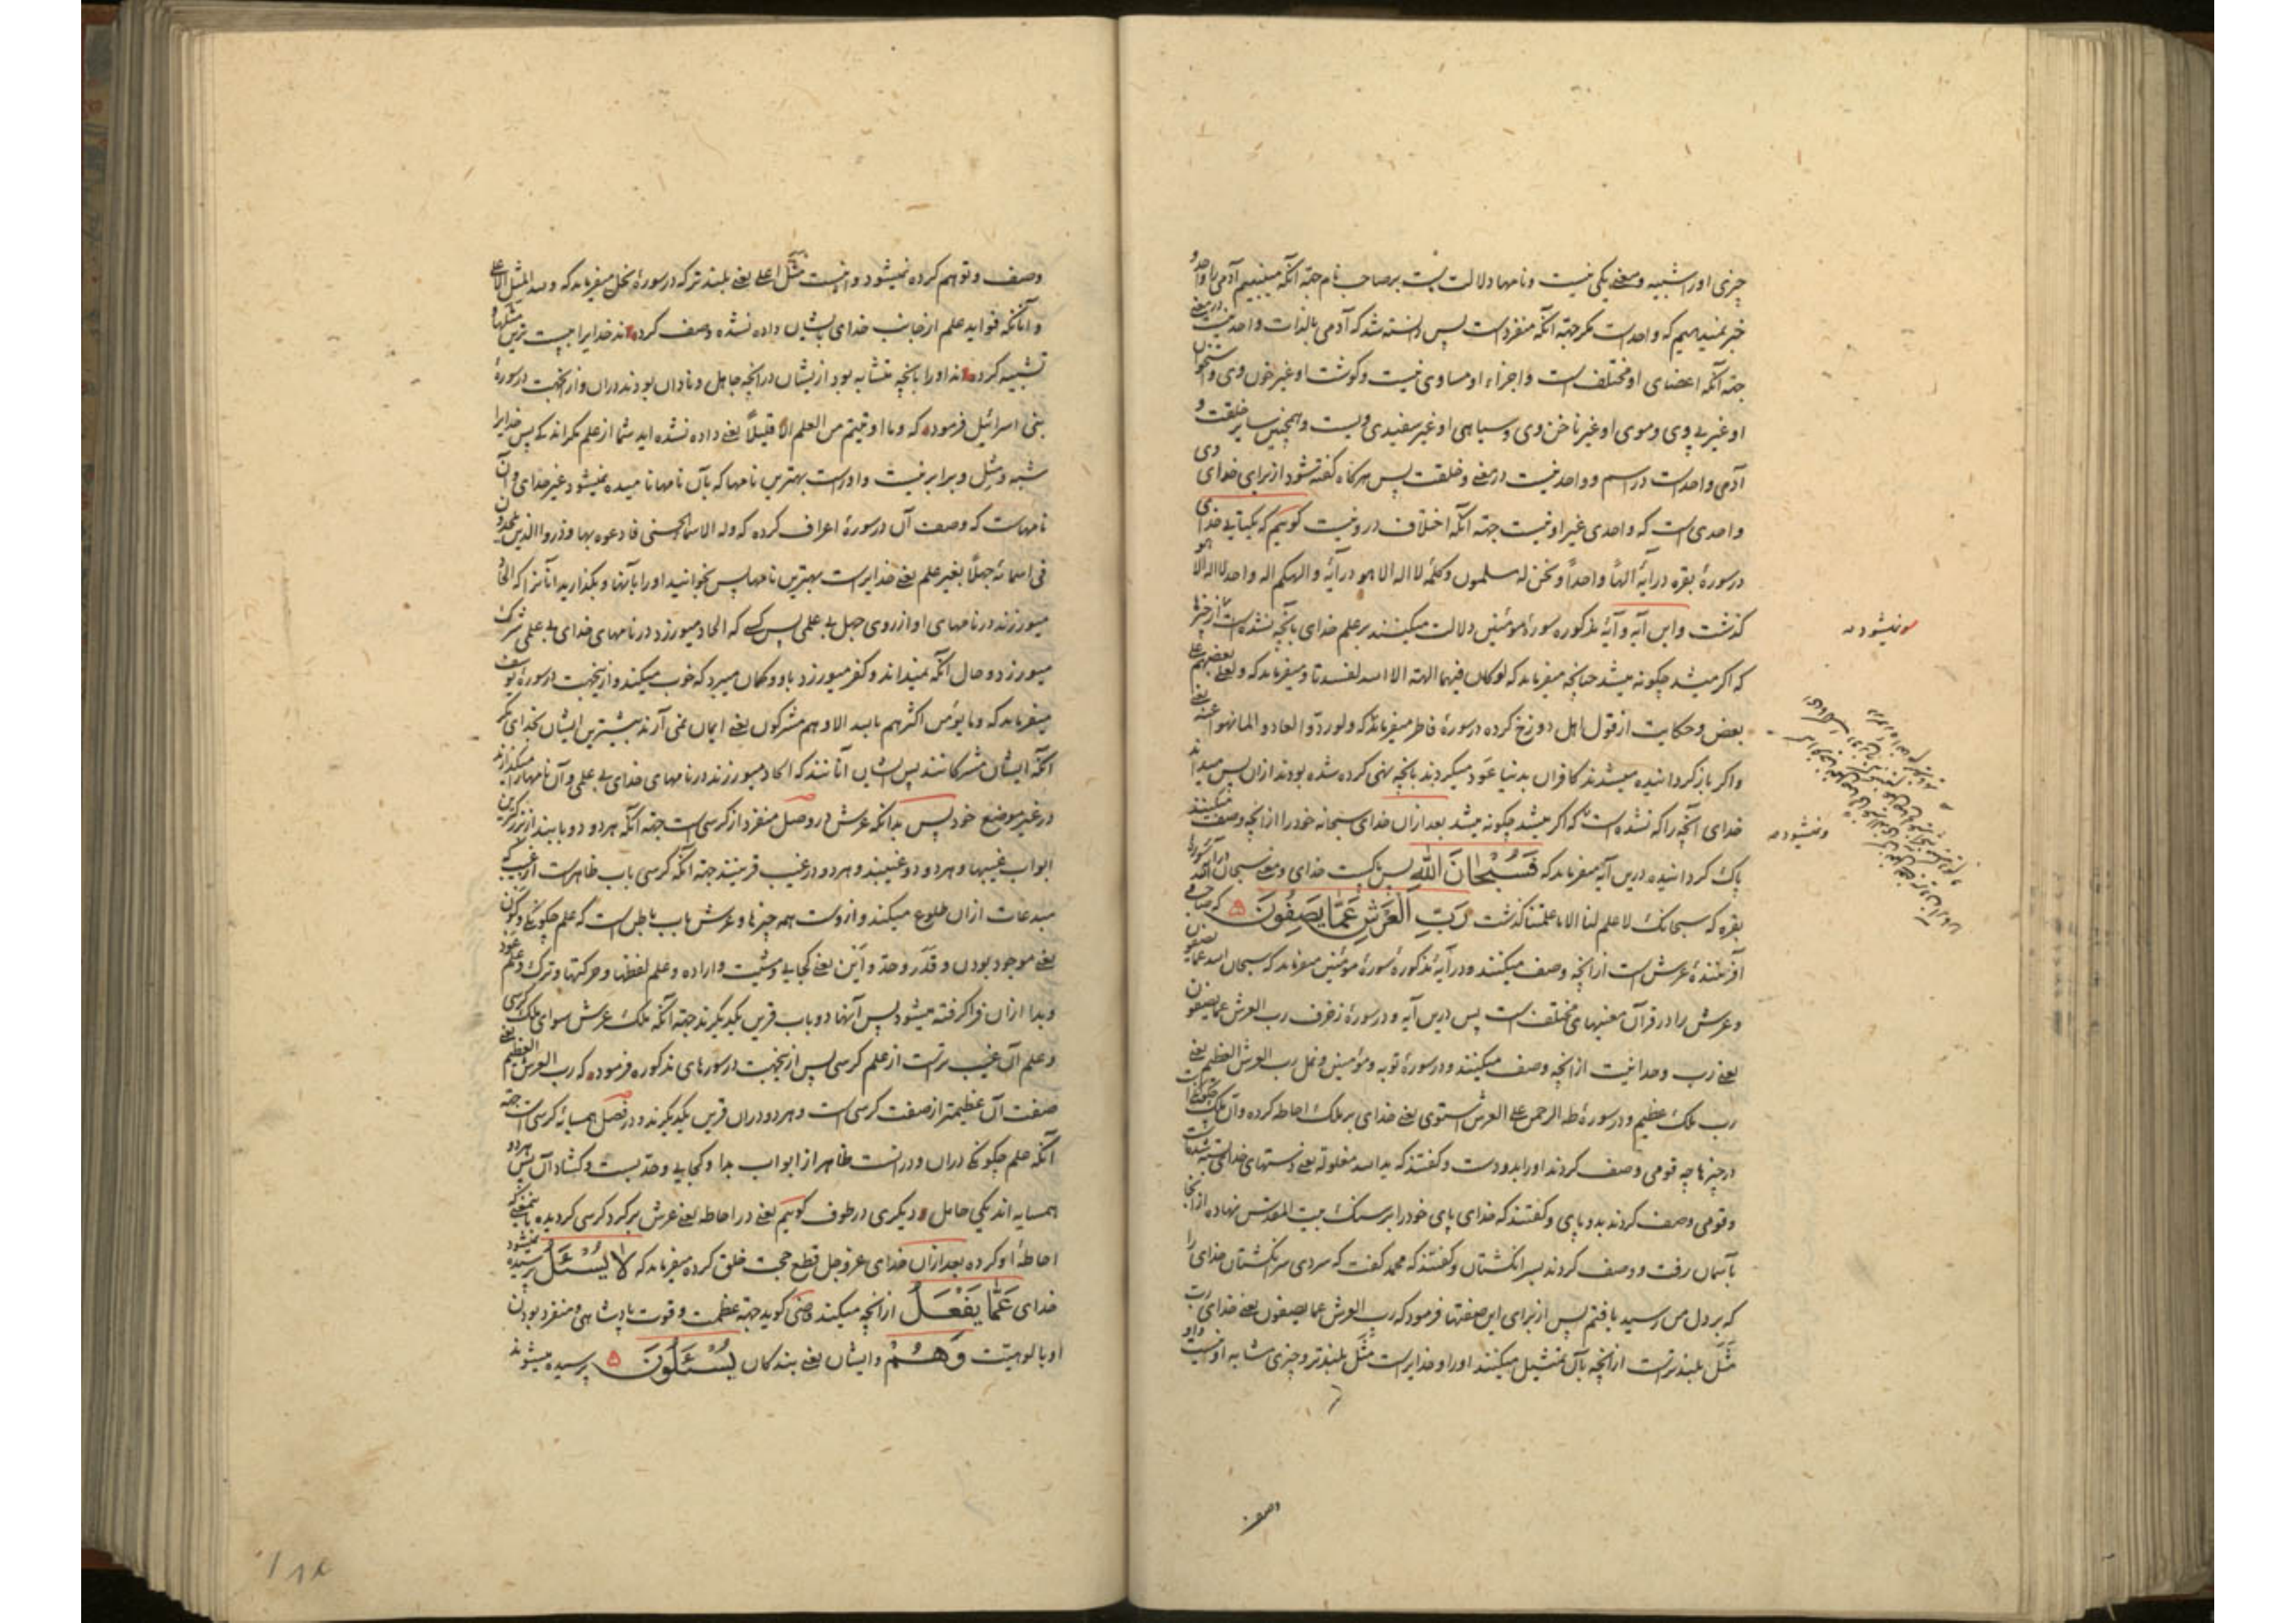 چیزی اورا شبیه و معنی یکی نیست و نامها دلالت است بر صاحب نام جهة آنکه میبینیم آدمی را واحد و
خبر نمیدهیم که واحد است مکر جهة آنکه منفرد است پس دانسته شد که آدمی بالذات واحد نیست در معنی
جهة آنکه اعضای او مختلف است و اجزاء او مساوی نیست و کوشت او غیر خون وی و استخوان
او غیر پی وی و موی او غیر ناخن وی و سیاهی او غیر سفیدی ویست و همچنین سایر خلقت و
آدمی واحد است در اسم و واحد نیست در معنی و خلقت پس هرکاه کفته شود از برای خدای
واحدی است که واحدی غیر او نیست جهة آنکه اختلاف درو نیست کوییم که یکتایی خدای
در سورهٔ بقره در آیهٔ الهاً واحداً و نحن له مسلمون و کلمهٔ لا اله الا هو در آیهٔ و الهکم اله واحد لا اله الا هو
کذشت و این آیه و آیهٔ مذکوره سورهٔ مؤمنین دلالت میکنند بر علم خدای بآنچه نشده است از چیزها
که اکر میشد چکونه میشد چنانچه میفرماید که لو کان فیهما الهة الا الله لفسدتا و میفرماید که و لعلی بعضهم علی
بعض و حکایت از قول اهل دوزخ کرده در سورهٔ فاطر میفرماید که و لو ردّوا لعادوا لما نهوا عنه یعنی
و اکر باز کردانیده میشدند کافران بدنیا عَود میکردند بآنچه نهی کرده شده بودند ازان پس میداند
خدای آنچه را که نشده است که اکر میشد چکونه میشد بعد ازان خدای سبحانه خود را از آنچه وصف میکنند
پاک کردانیده درین آیه میفرماید که فَسُبْحَانَ اللهِ پس پاکست خدای و معنی سبحان الله در آیهٔ سورهٔ
بقره که سبحانک لا علم لنا الا ما علمتنا کذشت رَبِّ الْعَرْشِ عَمَّا یَصِفُونَ ۵ که صاحب و
آفرینندهٔ عرش است از آنچه وصف میکنند و در آیهٔ مذکورهٔ سورهٔ مؤمنین میفرماید که سبحان الله عما یصفون
و عرش را در قرآن معنیهای مختلف است پس درین آیه و در سورهٔ زخرف رب العرش عما یصفون
یعنی رب وحدانیت از آنچه وصف میکنند و در سورهٔ توبه و مؤمنین و نمل رب العرش العظیم یعنی
رب ملک عظیم و در سورهٔ طه الرحمن علی العرش استوی یعنی خدای بر ملک احاطه کرده و آن ملک
در چیزها چه قومی وصف کردند اورا بدو دست و کفتند که ید الله مغلولة یعنی دستهای خدای بسته شده است
و قومی وصف کردند بدو پای و کفتند که خدای پای خود را بر سنک بیت المقدس نهاده از آنجا
بآسمان رفت و وصف کردند بسر انکشتان و کفتند که محمد کفت که سردی سر انکشتان خدای را
که بر دل من رسید یافتم پس از برای این صفتها فرمود که رب العرش عما یصفون یعنی خدای رب
مَثَل بلندتر است از آنچه بآن تمثیل میکنند اورا و خدایراست مَثَل بلندتر و چیزی مشابه او نیست و او
و نمیشود صه
وصف
وصف و توهم کرده نمیشود و اینست مَثَل اعلی یعنی بلندتر که در سورهٔ نحل میفرماید که و لله المثل الاعلی
و آنانکه فواید علم از جانب خدای بایشان داده نشده وصف کرده‌اند خدایرا به پست‌ترین مثلها و
تشبیه کرده‌اند اورا بآنچه متشابه بود ازیشان در آنچه جاهل و نادان بودند دران و ازینجهت در سورهٔ
بنی اسرائیل فرموده که و ما اوتیتم من العلم الا قلیلاً یعنی داده نشده اید شما از علم مکر اندکی پس خدایرا
شبه و مثل و برابر نیست و اوراست بهترین نامها که بآن نامها نامیده نمیشود غیر خدای و آن
نامهاست که وصف آن در سورهٔ اعراف کرده که و له الاسماء الحسنی فادعوه بها و ذروا الذین یلحدون
فی اسمائه جهلاً بغیر علم یعنی خدایراست بهترین نامها پس بخوانید اورا بآنها و بکذارید آنانرا که الحاد
میورزند در نامهای او از روی جهل بی علمی پس کسی که الحاد میورزد در نامهای خدای بی علمی شرک
میورزد و حال آنکه نمیداند و کفر میورزد باو و کمان میبرد که خوب میکند و ازینجهت در سورهٔ یوسف
میفرماید که و ما یؤمن اکثرهم بالله الا و هم مشرکون یعنی ایمان نمی آرند بیشترین ایشان بخدای مکر
آنکه ایشان مشرکانند پس ایشان آنانند که الحاد میورزند در نامهای خدای بی علمی و آن نامها را میکذارند
در غیر موضع خود پس بدانکه عرش در وصل منفرد از کرسی است جهة آنکه هر دو دو بابند از بزرکترین
ابواب غیبها و هر دو دو غیبند و هر دو در غیب قرینند جهة آنکه کرسی باب ظاهر است از غیب که
مبدعات ازان طلوع میکند و ازوست همه چیزها و عرش باب باطن است که علم چکونکی و کون
یعنی موجود بودن و قَدَر و حدّ و اَیْن یعنی کجایی و مشیت و اراده و علم لفظها و حرکتها و ترک و علم عَود
و بدا ازان فرا کرفته میشود پس آنها دو باب قرین یکدیکرند جهة آنکه ملک عرش سوای ملک کرسی
و علم آن غیب‌تر است از علم کرسی پس ازینجهت در سورهای مذکوره فرموده که رب العرش العظیم یعنی
صفت آن عظیمتر از صفت کرسی است و هر دو دران قرین یکدیکرند و در فصل همسایهٔ کرسی است جهة
آنکه علم چکونکی دران و درانست ظاهر از ابواب بدا و کجایی و حدّ بست و کشاد آن پس هر دو
همسایه اند یکی حامل دیکری در ظرف کوییم یعنی در احاطه یعنی عرش بر کرد کرسی کردیده باینمعنی که
احاطهٔ او کرده بعد ازان خدای عز و جل قطع حجت خلق کرده میفرماید که لا یُسْئَلُ پرسیده نمیشود
خدای عَمَّا یَفْعَلُ از آنچه میکند کوید جهة عظمت و قوت پادشاهی و منفرد بودن
او بالوهیت وَهُمْ و ایشان یعنی بندکان یُسْئَلُونَ ۵ پرسیده میشوند